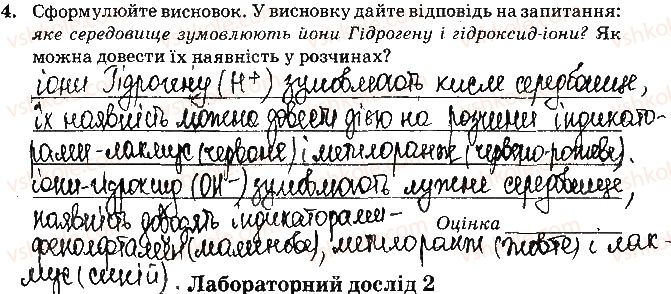 4. Сформулюйте висновок. У висновку дайте відповідь на запитання:
яке середовище зумовлюють йони Гідрогену і гідроксид-іони? Як
можна довести їх наявність у розчинах?
іони Гідрогену (H⁺) зумовлюють кисле середовище,
їх наявність можна довести дією на розчини індикато-
рами-лакмус (червоне) і метилоранж (червоно-рожеве).
іони-гідроксид (OH⁻) зумовлюють лужне середовище,
наявність доводять індикаторами-
Оцінка
фенолфталеїн (малинове), метилоранж (жовте) і лак-
мус (синій).
Лабораторний дослід 2